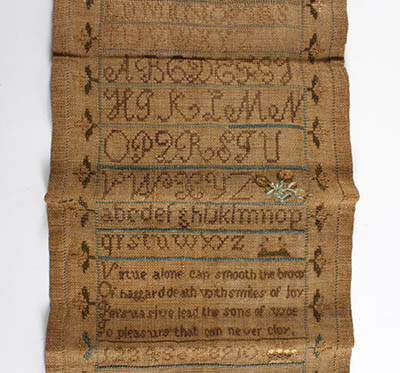 A B C D E F G
H I K L M N
O P Q R S T U
V W X Y Z
abcdefghijklmnop
qrstuvwxyz
Virtue alone can smooth the brow
Of haggard death with smiles of joy
Persuasive lead the sons of woe
To pleasurs that can never cloy.